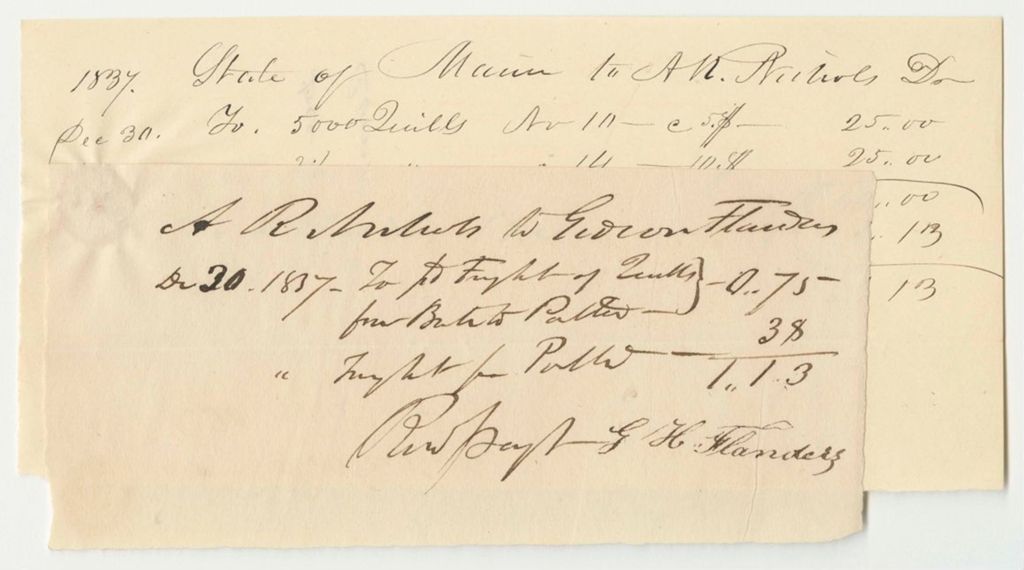 1837. State of Maine to A R. Nichols Dr
Dec 30. To. 5000 Quills No 10 — c 5.$ — 25.00
" 14 — 10.$ 25.00
.00
. 13
13
A R Nichols to Gideon Flanders
Dec 30. 1837 — To pd Fright of Quills — 0.75
from to — 38
" Fright for — 1.13
Recd Payt G H. Flanders